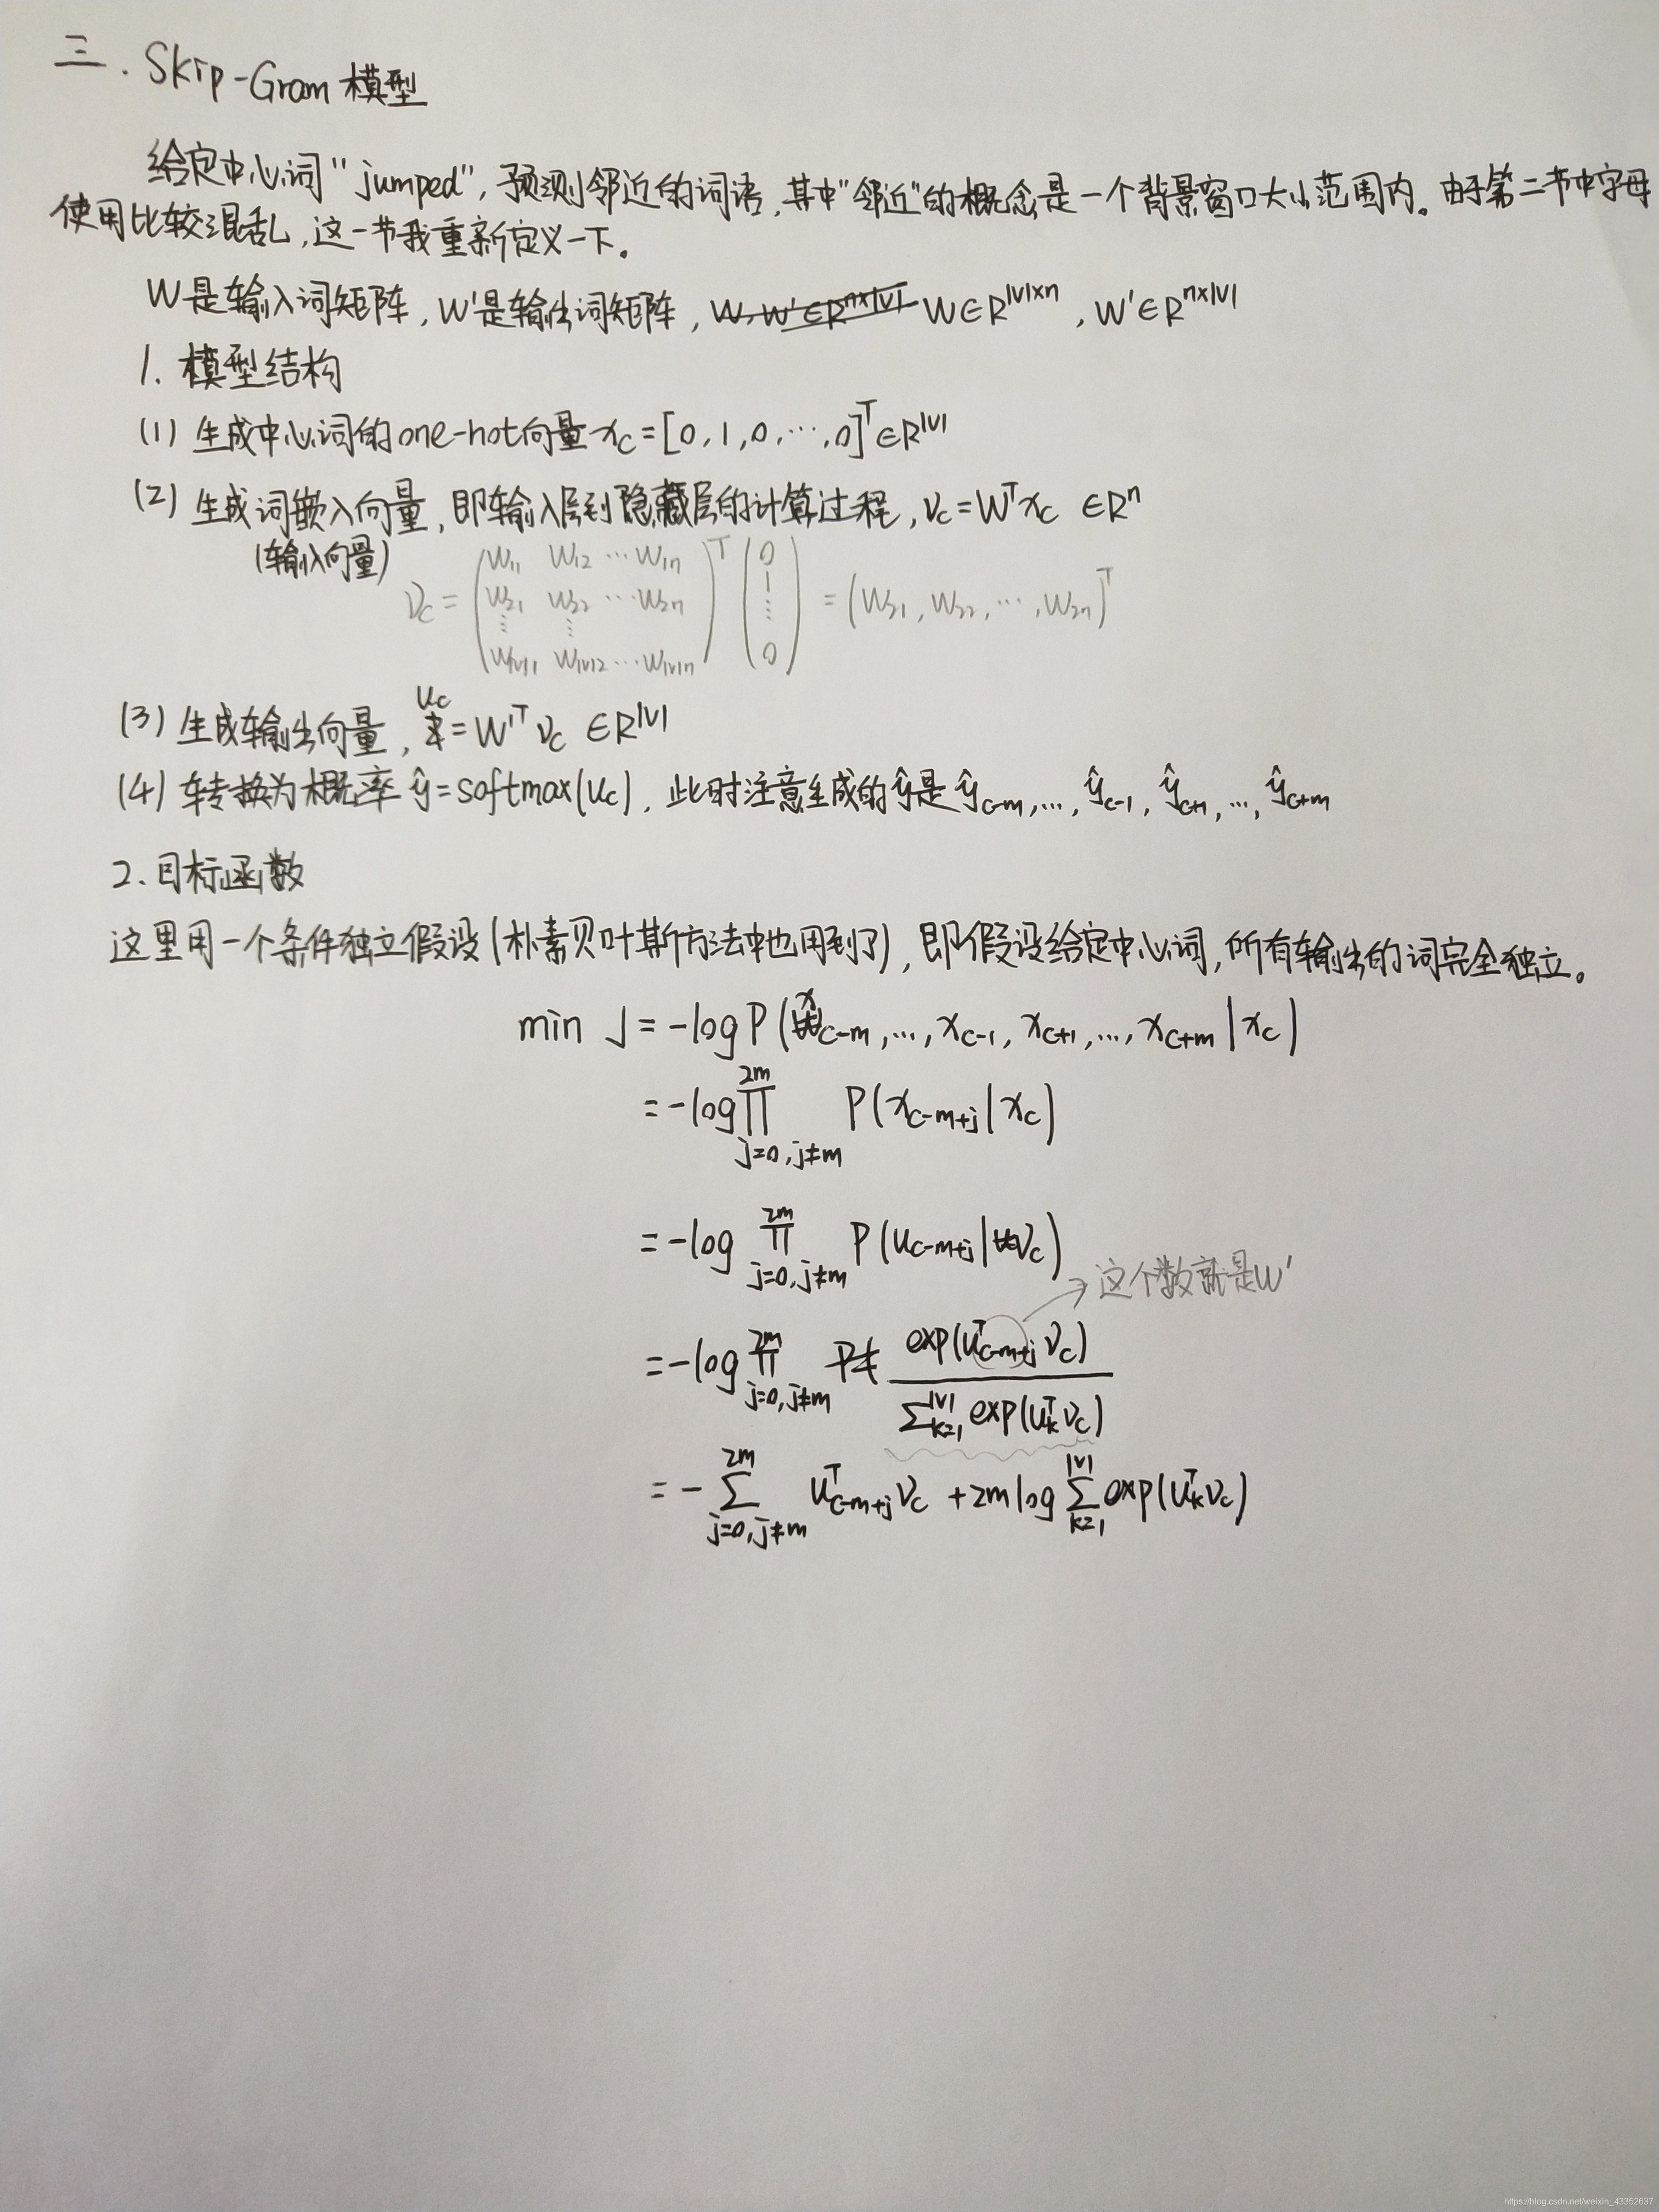 三. Skip-Gram 模型
给定中心词"jumped",预测邻近的词语,其中"邻近"的概念是一个背景窗口大小范围内。由于第二节中字母
使用比较混乱,这一节我重新定义一下。
W是输入词矩阵,W'是输出词矩阵, W, W'∈R^{n×|V|} W∈R^{|V|×n}, W'∈R^{n×|V|}
1. 模型结构
(1) 生成中心词的one-hot向量 x_c=[0,1,0,…,0]^T∈R^{|V|}
(2) 生成词嵌入向量,即输入层到隐藏层的计算过程, v_c=W^T x_c ∈R^n
(输入向量)
v_c = (W_{11} W_{12} … W_{1n}
W_{21} W_{22} … W_{2n}
⋮ ⋮
W_{|V|1} W_{|V|2} … W_{|V|n})^T (0 1 ⋮ 0) = (W_{21}, W_{22}, …, W_{2n})^T
(3) 生成输出向量, u_c = W'^T v_c ∈R^{|V|}
(4) 转换为概率 ŷ=softmax(u_c), 此时注意生成的ŷ是 ŷ_{c-m},…, ŷ_{c-1}, ŷ_{c+1},…, ŷ_{c+m}
2. 目标函数
这里用一个条件独立假设(朴素贝叶斯方法中也用到了),即假设给定中心词,所有输出的词完全独立。
min J = -log P(x_{c-m},…, x_{c-1}, x_{c+1},…, x_{c+m} | x_c)
= -log ∏_{j=0,j≠m}^{2m} P(x_{c-m+j} | x_c)
= -log ∏_{j=0,j≠m}^{2m} P(u_{c-m+j} | v_c)
这个数就是W'
= -log ∏_{j=0,j≠m}^{2m} exp(u_{c-m+j}^T v_c) / ∑_{k=1}^{|V|} exp(u_k^T v_c)
= -∑_{j=0,j≠m}^{2m} u_{c-m+j}^T v_c + 2m log ∑_{k=1}^{|V|} exp(u_k^T v_c)
https://blog.csdn.net/weixin_43352637